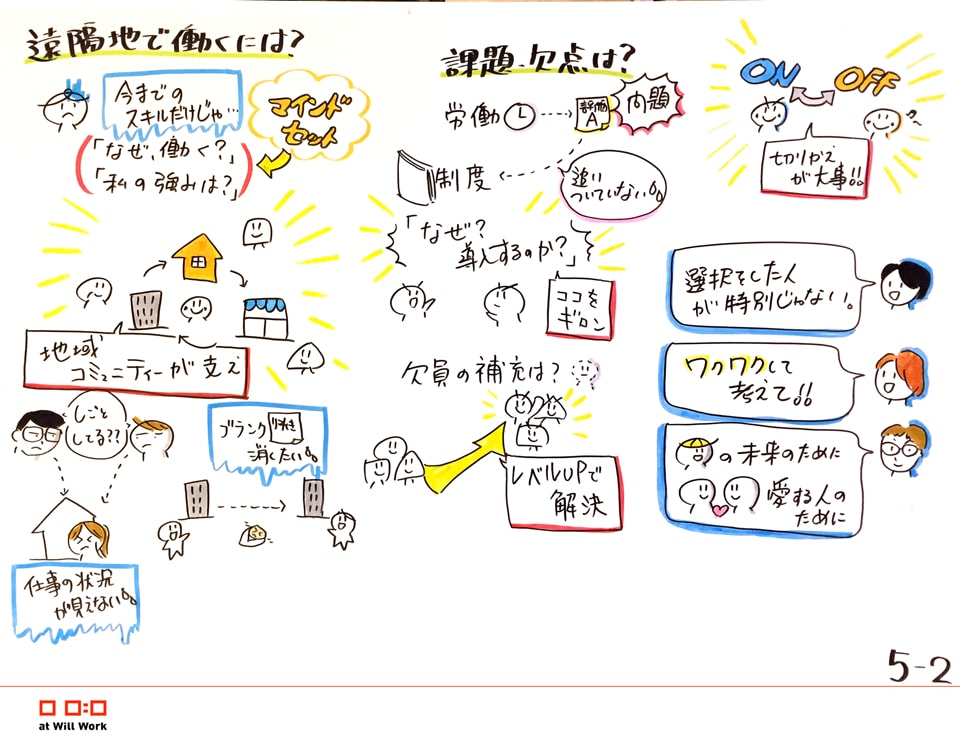 遠隔地で働くには?
今までの
スキルだけじゃ…
マインド
セット
「なぜ、働く?」
「私の強みは?」
地域
コミュニティーが支え
しごと
してる??
ブランク
消したい
仕事の状況
が見えない
課題・欠点は?
労働
評価
A
問題
制度
追い
ついていない
「なぜ?
導入するのか?」
ココを
ギロン
欠員の補充は?
レベルUPで
解決
ON
OFF
切りかえ
が大事!!
選択をした人
が特別じゃない。
ワクワクして
考えて!!
の未来のために
愛する人の
ために
5-2
at Will Work